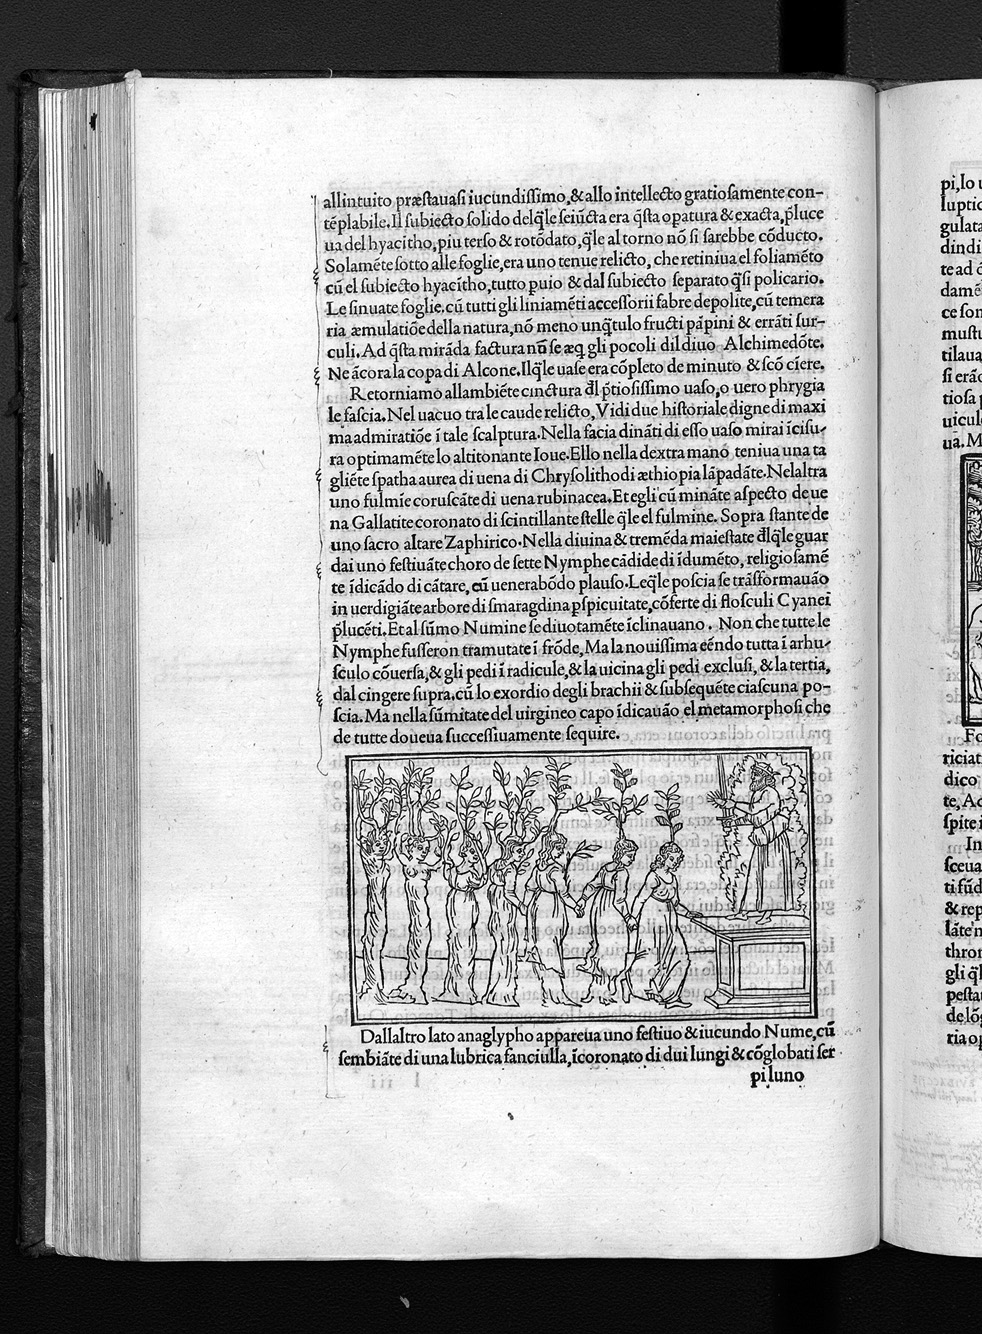 allintuito præſtauaſi iucundiſſimo,&allo intellecto gratioſamente con-
tēplabile.Il ſubiecto ſolido delq̃le ſeiūcta era q̃ſta opatura & exacta,p̃luce
ua del hyacītho,piu terſo & rotōdato,q̃le al torno nō ſi ſarebbe cōducto.
Solamēte ſotto alle foglie,era uno tenue relicto, che retiniua el foliamēto
cū el ſubiecto hyacītho,tutto puio & dal ſubiecto ſeparato q̃ſi policario.
Le ſinuate foglie.cū tutti gli liniamēti acceſſorii fabre depolite,cū temera
ria æmulatiōe della natura,nō meno unq̃tulo fructi pāpini & errāti ſur-
culi. Ad q̃ſta mirāda factura nō ſe æq gli pocoli dil diuo Alchimedōte.
Ne ācora la copa di Alcone.Ilq̃le uaſe era cōpleto de minuto & ſcō ciere.
Retorniamo allambiēte cinctura d̄l p̄tioſiſſimo uaſo,o uero phrygia
le faſcia. Nel uacuo tra le caude relicto, Vidi due hiſtoriale digne di maxi
ma admiratiōe ī tale ſcalptura.Nella facia dināti di eſſo uaſo mirai īciſu-
ra optimamēte lo altitonante Ioue.Ello nella dextra mano teniua una ta
gliēte ſpatha aurea di uena di Chryſolitho di æthiopia lāpadāte.Nelaltra
uno fulmīe coruſcāte di uena rubinacea.Et egli cū mināte aſpecto de ue
na Gallatite coronato di ſcintillante ſtelle q̃le el fulmine. Sopra ſtante de
uno ſacro altare Zaphirico.Nella diuina & tremēda maieſtate d̄lq̃le guar
dai uno feſtiuāte choro de ſette Nymphe cādide di īdumēto, religioſamē
te īdicādo di cātare, cū uenerabōdo plauſo.Leq̃le poſcia ſe trāſformauāo
in uerdigiāte arbore di ſmaragdina pſpicuitate,cōferte di floſculi Cyanei
p̃lucēti.Et al ſūmo Numine ſe diuotamēte īclinauano. Non che tutte le
Nymphe fuſſeron tramutate ī frōde, Ma la nouiſſima eēndo tutta ī arbu-
ſculo cōuerſa,& gli pedi ī radicule,& la uicina gli pedi excluſi,& la tertia,
dal cingere ſupra.cū lo exordio degli brachii & ſubſequēte ciaſcuna po-
ſcia. Ma nella ſūmitate del uirgineo capo īdicauāo el metamorphoſi che
de tutte doueua ſucceſſiuamente ſequire.
Dallaltro lato anaglypho appareua uno feſtiuo & iucundo Nume,cū
ſembiāte di una lubrica fanciulla,īcoronato di dui lungi & cōglobati ſer
pi luno